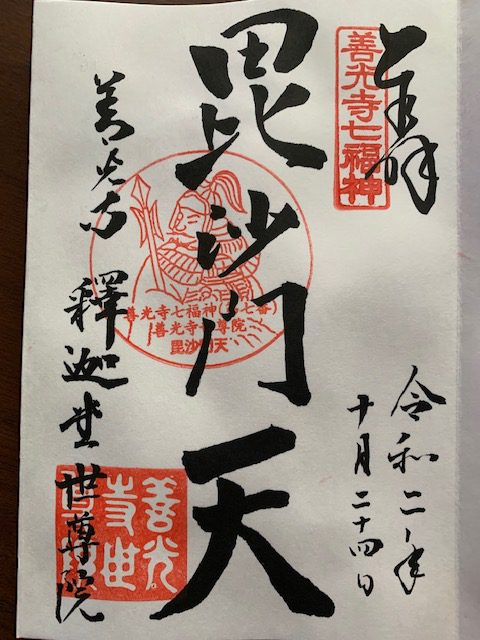 奉拝
善光寺七福神
令和二年
十月二十四日
毘沙門天
善光寺七福神(第七番)
善光寺世尊院
毘沙門天
善光寺 釋迦堂 世尊院
善光
寺世